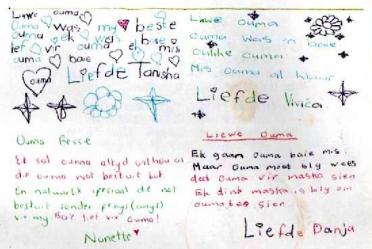 Liewe ouma
Ouma was my beste
ouma ek was baie
lief vir ouma ek mis
ouma baie
Liefde Tanisha
ouma
Liewe ouma
Ouma was n baie
Oulike ouma
Mis ouma al klaar
Liefde Vivica
Ouma Bessie
Ek sal ouma altyd onthou as
die ouma wat bestuit bak.
En natuurlik spesiaal die net
bestuit sonder
vir my Ba! Lief vir ouma!
Nanette
Liewe Ouma
Ek gaan Ouma baie mis.
Maar Ouma moet bly wees
dat Ouma vir masha sien
Ek dink masha is bly om
ouma toe sien
Liefde Danja